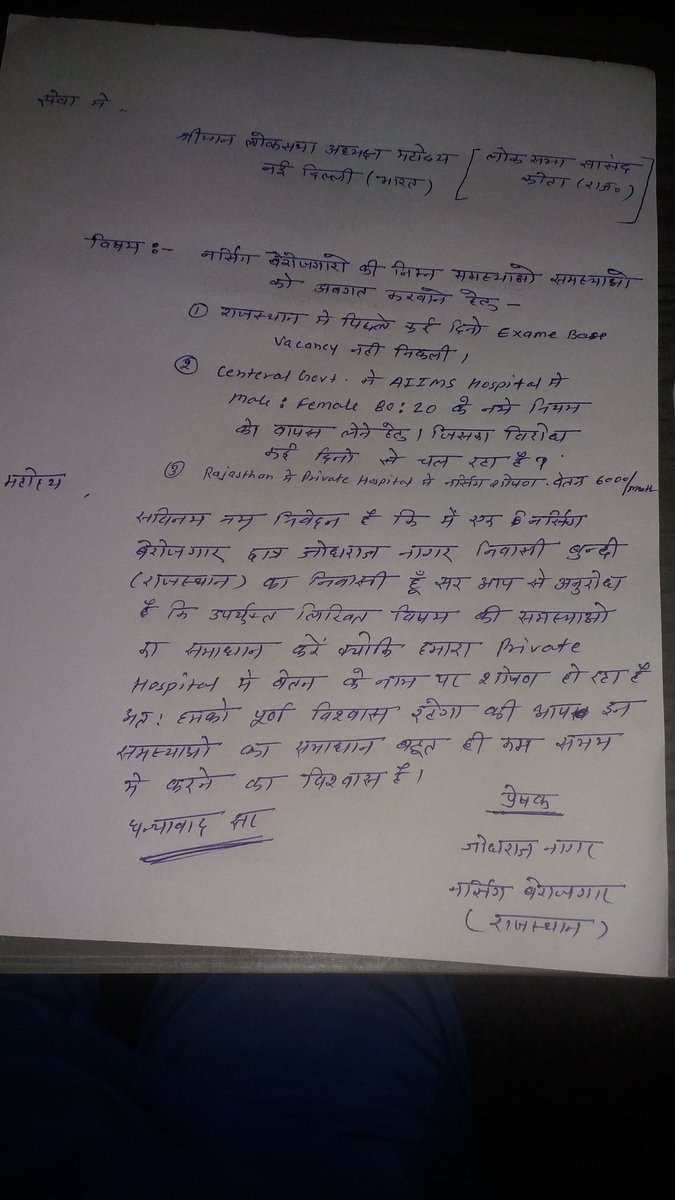 सेवा मे,
श्रीमान लोकसभा अध्यक्ष महोदय [लोक सभा सांसद
नई दिल्ली (भारत) कोटा (राज०)]
विषय :- नर्सिंग बेरोजगारो की निम्न समस्याओ समस्याओ
को अवगत करवाने हेतु -
① राजस्थान मे पिछले कई दिनो Exame Base
Vacancy नही निकली।
② Centeral Govt. मे AIIMS Hospital मे
male : Female 80:20 के नये नियम
को वापस लेने हेतु। जिसका विरोध
कई दिनो से चल रहा है?
③ Rajasthan मे Private Hospital मे नर्सिंग शोषण. वेतन 6000/month
महोदय,
सविनय नम्र निवेदन है कि मै एक नर्सिंग
बेरोजगार छात्र जोधराज नागर निवासी बुन्दी
(राजस्थान) का निवासी हूँ सर आप से अनुरोध
है कि उपर्युक्त लिखित विषय की समस्याओ
का समाधान करें क्योकि हमारा Private
Hospital मे वेतन के नाम पर शोषण हो रहा है
अत: हमको पूर्ण विश्वास रहेगा की आप इन
समस्याओ का समाधान बहूत ही कम समय
मे करने का विश्वास है।
धन्यावाद सर
प्रेषक
जोधराज नागर
नर्सिंग बेराजगार
(राजस्थान)